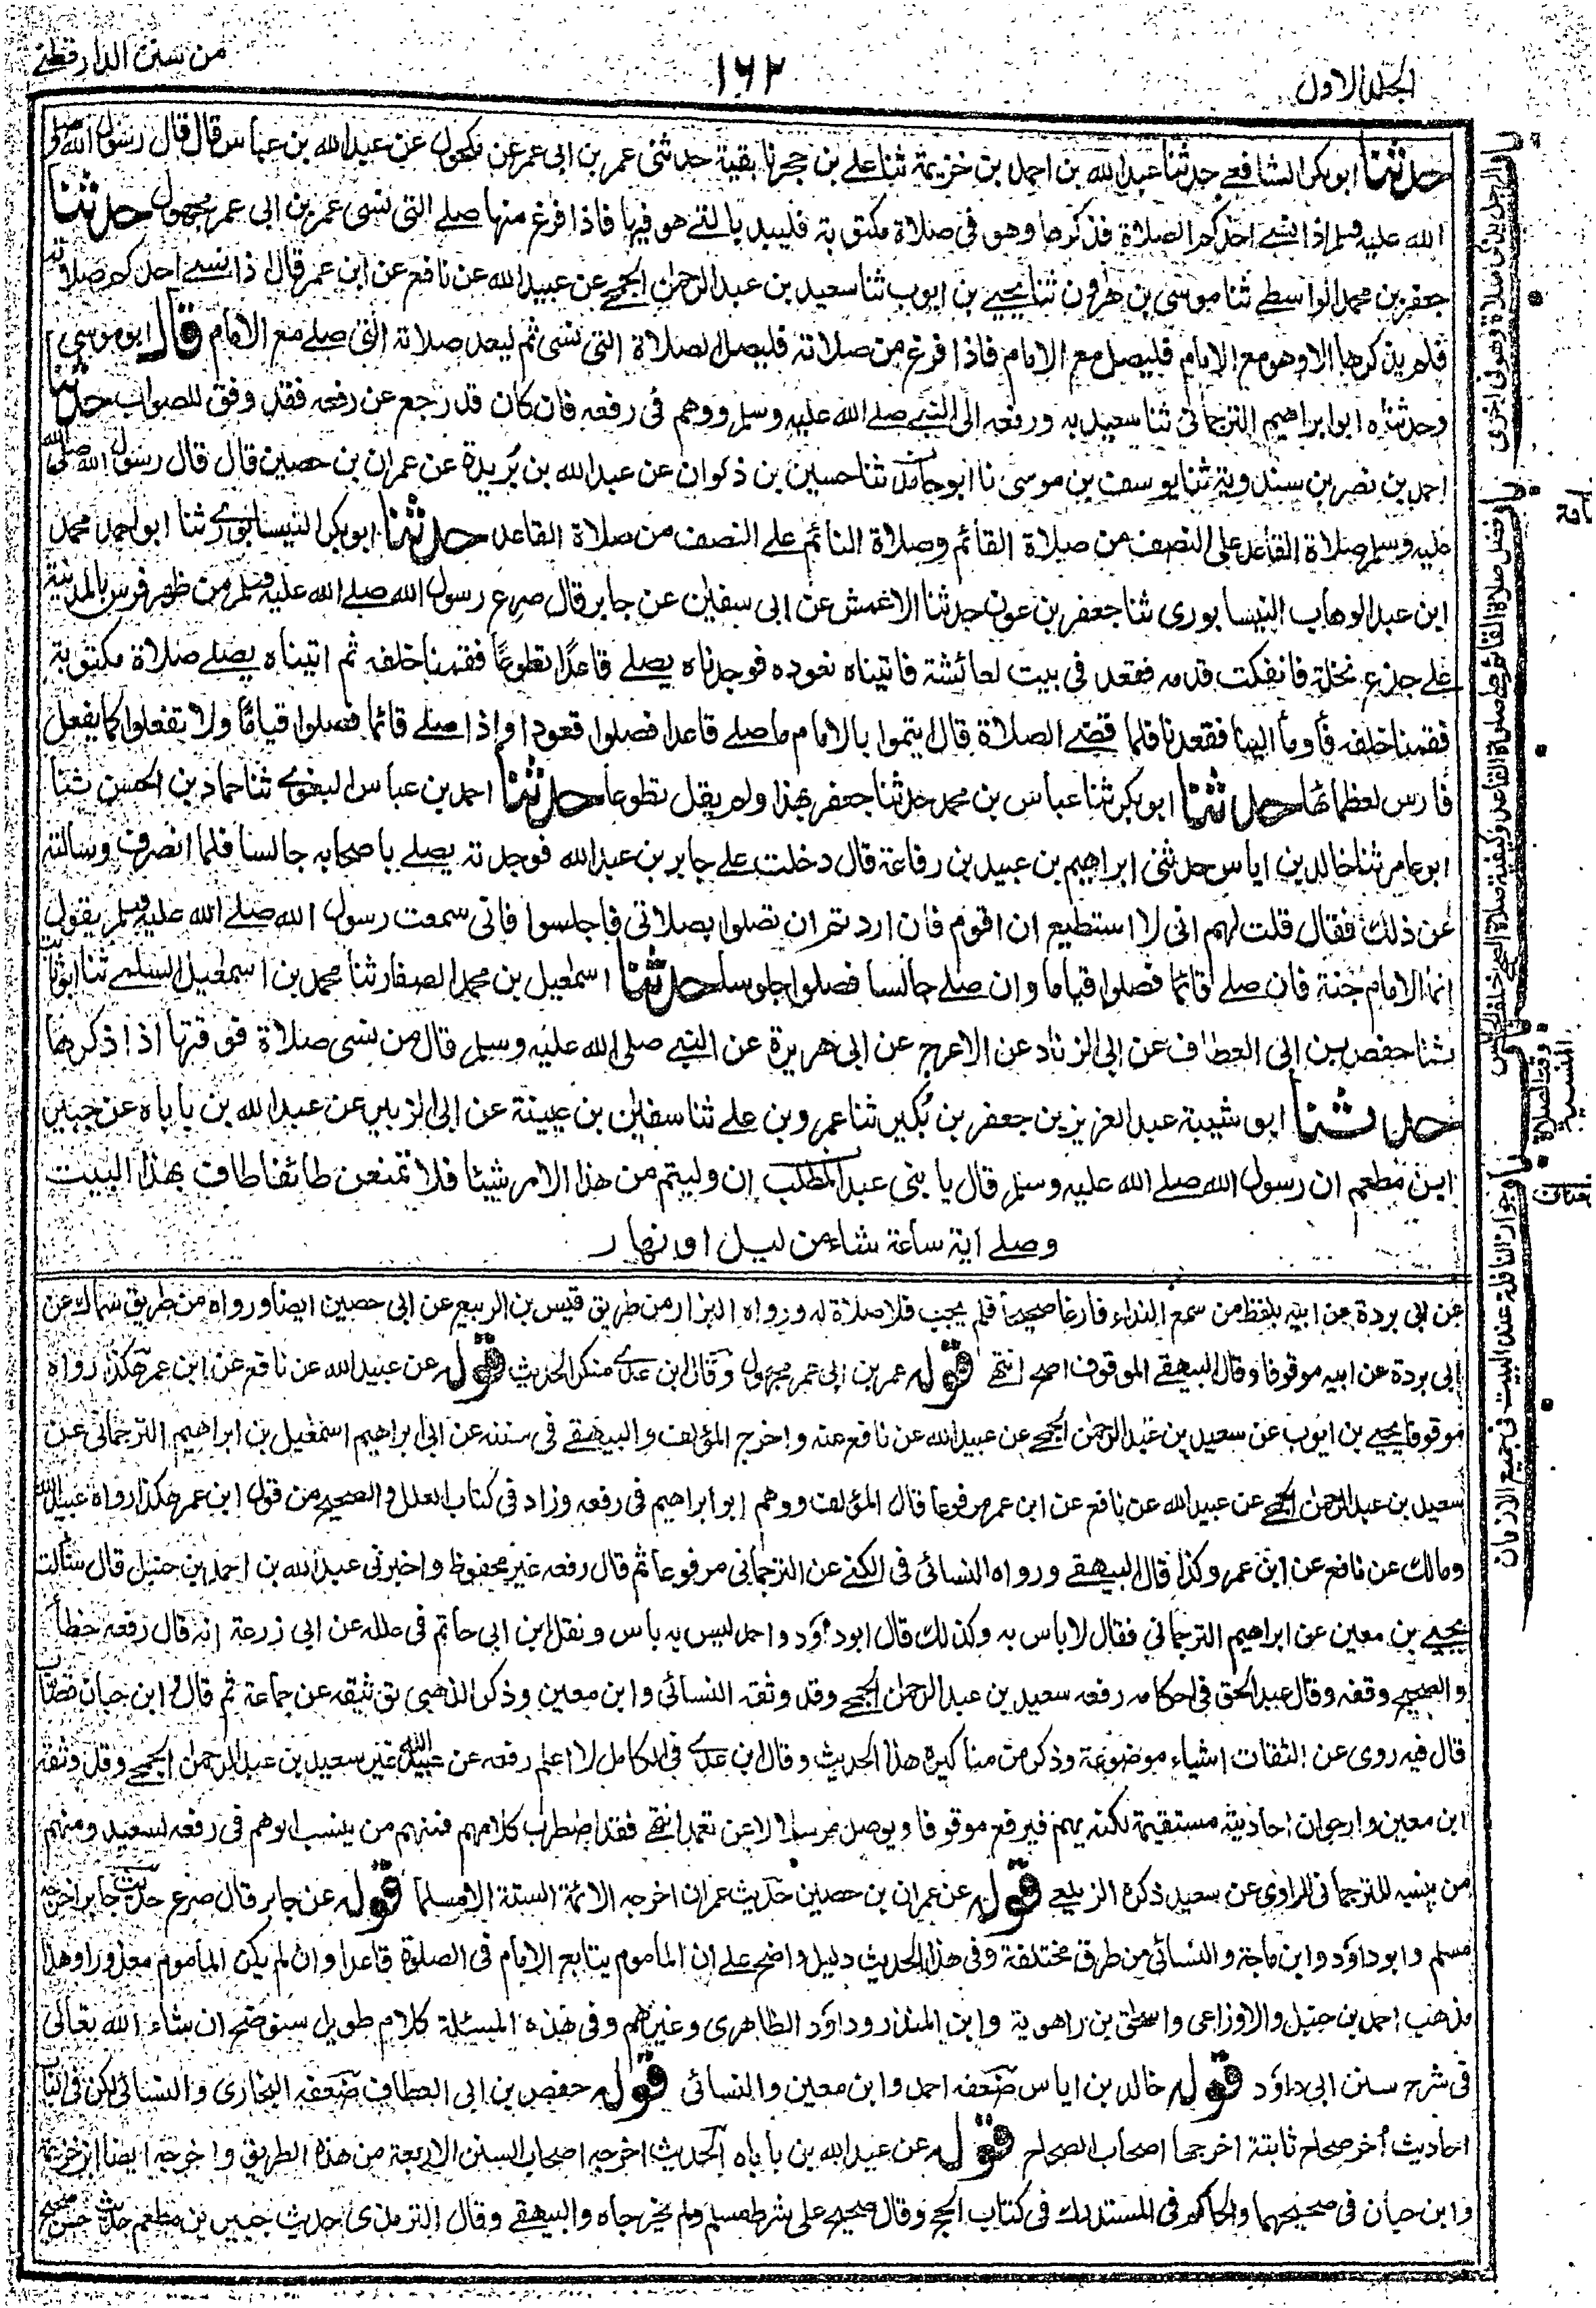 الجلد الاول
١٦٢
من سنن الدارقطنے
حدثنا ابوبكر الشافعے حدثنا عبد الله بن احمد بن خزيمة ثنا علے بن حجر نا بقية حدثنى عمر بن ابى عمر عن مكحول عن عبد الله بن عباس قال قال رسول الله صلى
الله عليه وسلم اذا نسے احدكم الصلاة فذكرها وهو فى صلاة مكتوبة فليبد بالتے هو فيها فاذا فرغ منها صلے التى نسى عمر بن ابى عمر مجهول حدثنا
جعفر بن محمد الواسطے ثنا موسى بن هارون ثنا يحيے بن ايوب ثنا سعيد بن عبد الرحمن الجمحے عن عبيد الله عن نافع عن ابن عمر قال اذا نسے احدكم صلاته
فلم يذكرها الا وهو مع الامام فليصل مع الامام فاذا فرغ من صلاته فليصل الصلاة التى نسى ثم ليعد صلاته التى صلے مع الامام قال ابو موسى
وحدثناه ابو ابراهيم الترجمانى ثنا سعيد به ورفعه الى النبے صلے الله عليه وسلم ووهم فى رفعه فان كان قد رجع عن رفعه فقد وفق للصواب حدثنا
احمد بن نصر بن سندوية ثنا يوسف بن موسى نا ابو حامد ثنا حسين بن ذكوان عن عبد الله بن بُريدة عن عمران بن حصين قال قال رسول الله صلى الله
عليه وسلم صلاة القاعد على النصف من صلاة القائم وصلاة النائم علے النصف من صلاة القاعد حدثنا ابوبكر النيسابورے ثنا ابو احمد محمد
ابن عبد الوهاب النيسابورى ثنا جعفر بن عون حدثنا الاعمش عن ابى سفيان عن جابر قال صرع رسول الله صلے الله عليه وسلم من ظهر فرس بالمدينة
علے جذع نخلة فانفكت قدمه فقعد فى بيت لعائشة فاتيناه نعوده فوجدناه يصلے قاعدًا تطوعًا فقمنا خلفه ثم اتيناه يصلے صلاة مكتوبة
فقمنا خلفه فأومأ الينا فقعدنا فلما قضے الصلاة قال ايتموا بالامام ما صلے قاعدا فصلوا قعودا واذا صلے قائما فصلوا قيامًا ولا تفعلوا كما يفعل
فارس لعظمائها حدثنا ابوبكر ثنا عباس بن محمد حدثنا جعفر بهذا ولم يقل تطوعا حدثنا احمد بن عباس البغوے ثنا حماد بن الحسن ثنا
ابو عامر ثنا خالد بن اياس حدثنى ابراهيم بن عبيد بن رفاعة قال دخلت علے جابر بن عبد الله فوجدته يصلے باصحابه جالسا فلما انصرف وسالته
عن ذلك فقال قلت لهم انى لا استطيع ان اقوم فان اردتم ان تصلوا بصلاتى فاجلسوا فانى سمعت رسول الله صلے الله عليه وسلم يقول
انما الامام جُنة فان صلے قائما فصلوا قياما وان صلے جالسا فصلوا جلوسا حدثنا اسمعيل بن محمد الصفار ثنا محمد بن اسمعيل السلمے ثنا ابو ثابت
ثنا حفص بن ابى العطاف عن ابى الزناد عن الاعرج عن ابى هريرة عن النبے صلى الله عليه وسلم قال من نسى صلاة فوقتها اذا ذكرها
حدثنا ابو شيبة عبد العزيز بن جعفر بن بُكير ثنا عمرو بن علے ثنا سفيان بن عيينة عن ابى الزبير عن عبد الله بن باباه عن جبير
ابن مطعم ان رسول الله صلے الله عليه وسلم قال يا بنى عبد المطلب إن وليتم من هذا الامر شيئا فلا تمنعن طائفا طاف بهذا البيت
وصلے اية ساعة شاء من ليل او نهار
عن ابى بردة عن ابيه بلفظ من سمع النداء فارغا صحيحا فلم يجب فلا صلاة له ورواه البزار من طريق قيس بن الربيع عن ابى حصين ايضا ورواه من طريق سماك عن
ابى بردة عن ابيه موقوفا وقال البيهقے الموقوف اصح انتهے قوله عمر بن ابى عمر مجهول وقال ابن عدے منكر الحديث قوله عن عبيد الله عن نافع عن ابن عمر هكذا رواه
موقوفا يحيے بن ايوب عن سعيد بن عبد الرحمن الجمحے عن عبيد الله عن نافع عنه واخرج المؤلف والبيهقے فى سننه عن ابى ابراهيم اسمعيل بن ابراهيم الترجمانى عن
سعيد بن عبد الرحمن الجمحے عن عبيد الله عن نافع عن ابن عمر مرفوعا قال المؤلف ووهم ابو ابراهيم فى رفعه وزاد فى كتاب العلل والصحيح من قول ابن عمر هكذا رواه عبيد الله
ومالك عن نافع عن ابن عمر وكذا قال البيهقے ورواه النسائى فى الكنے عن الترجمانى مرفوعا ثم قال رفعه غير محفوظ واخبرنى عبد الله بن احمد ابن حنبل قال سألت
يحيے بن معين عن ابراهيم الترجمانى فقال لا باس به وكذلك قال ابو داؤد واحمد ليس به باس ونقل ابن ابى حاتم فى علله عن ابى زرعة انه قال رفعه خطأ
والصحيح وقفه وقال عبد الحق فى احكامه رفعه سعيد بن عبد الرحمن الجمحے وقد وثقه النسائى وابن معين وذكر الذهبى توثيقه عن جماعة ثم قال و ابن حبان
قال فيه روى عن الثقات اشياء موضوعة وذكر من مناكيره هذا الحديث وقال ابن عدے فى الكامل لا اعلم رفعه عن عبيد الله غير سعيد بن عبد الرحمن الجمحے وقد وثقه
ابن معين وارجو ان احاديثه مستقيمة لكنه يهم فيرفع موقوفا ويوصل مرسلا لا عن تعمد انتهے فقد اضطرب كلامهم فمنهم من ينسب الوهم فى رفعه لسعيد ومنهم
من ينسبه للترجمانى الراوى عن سعيد ذكره الزيلعے قوله عن عمران بن حصين حديث عمران اخرجه الائمة الستة الا مسلما قوله عن جابر قال صرع حديث جابر اخرجه
مسلم وابو داؤد وابن ماجة والنسائى من طرق مختلفة وفى هذا الحديث دليل واضح علے ان المأموم يتابع الامام فى الصلوة قاعدا وان لم يكن المأموم معذورا وهذا
مذهب احمد بن حنبل والاوزاعى واسحق بن راهوية وابن المنذر وداؤد الظاهرى وغيرهم وفى هذه المسئلة كلام طويل سنوضح ان شاء الله تعالى
فى شرح سنن ابى داؤد قوله خالد بن اياس ضعفه احمد وابن معين والنسائى قوله حفص بن ابى العطاف ضعفه البخارى والنسائى لكن فى الباب
احاديث أخر صحاح ثابتة اخرجها اصحاب الصحاح قوله عن عبد الله بن باباه الحديث اخرجه اصحاب السنن الاربعة من هذا الطريق واخرجه ايضا ابن خزيمة
وابن حبان فى صحيحهما والحاكم فى المستدرك فى كتاب الحج وقال صحيح على شرط مسلم ولم يخرجاه والبيهقے وقال الترمذى حديث جبير بن مطعم حديث حسن صحيح
باب الرجل يذكر صلاة وهو فى اخرى
باب فضل صلاة القائم على صلاة القاعد وكيفية صلاة الصحيح خلف الجالس
باب وقت الصلاة المنسية
باب جواز النافلة عند البيت فى جميع الازمان